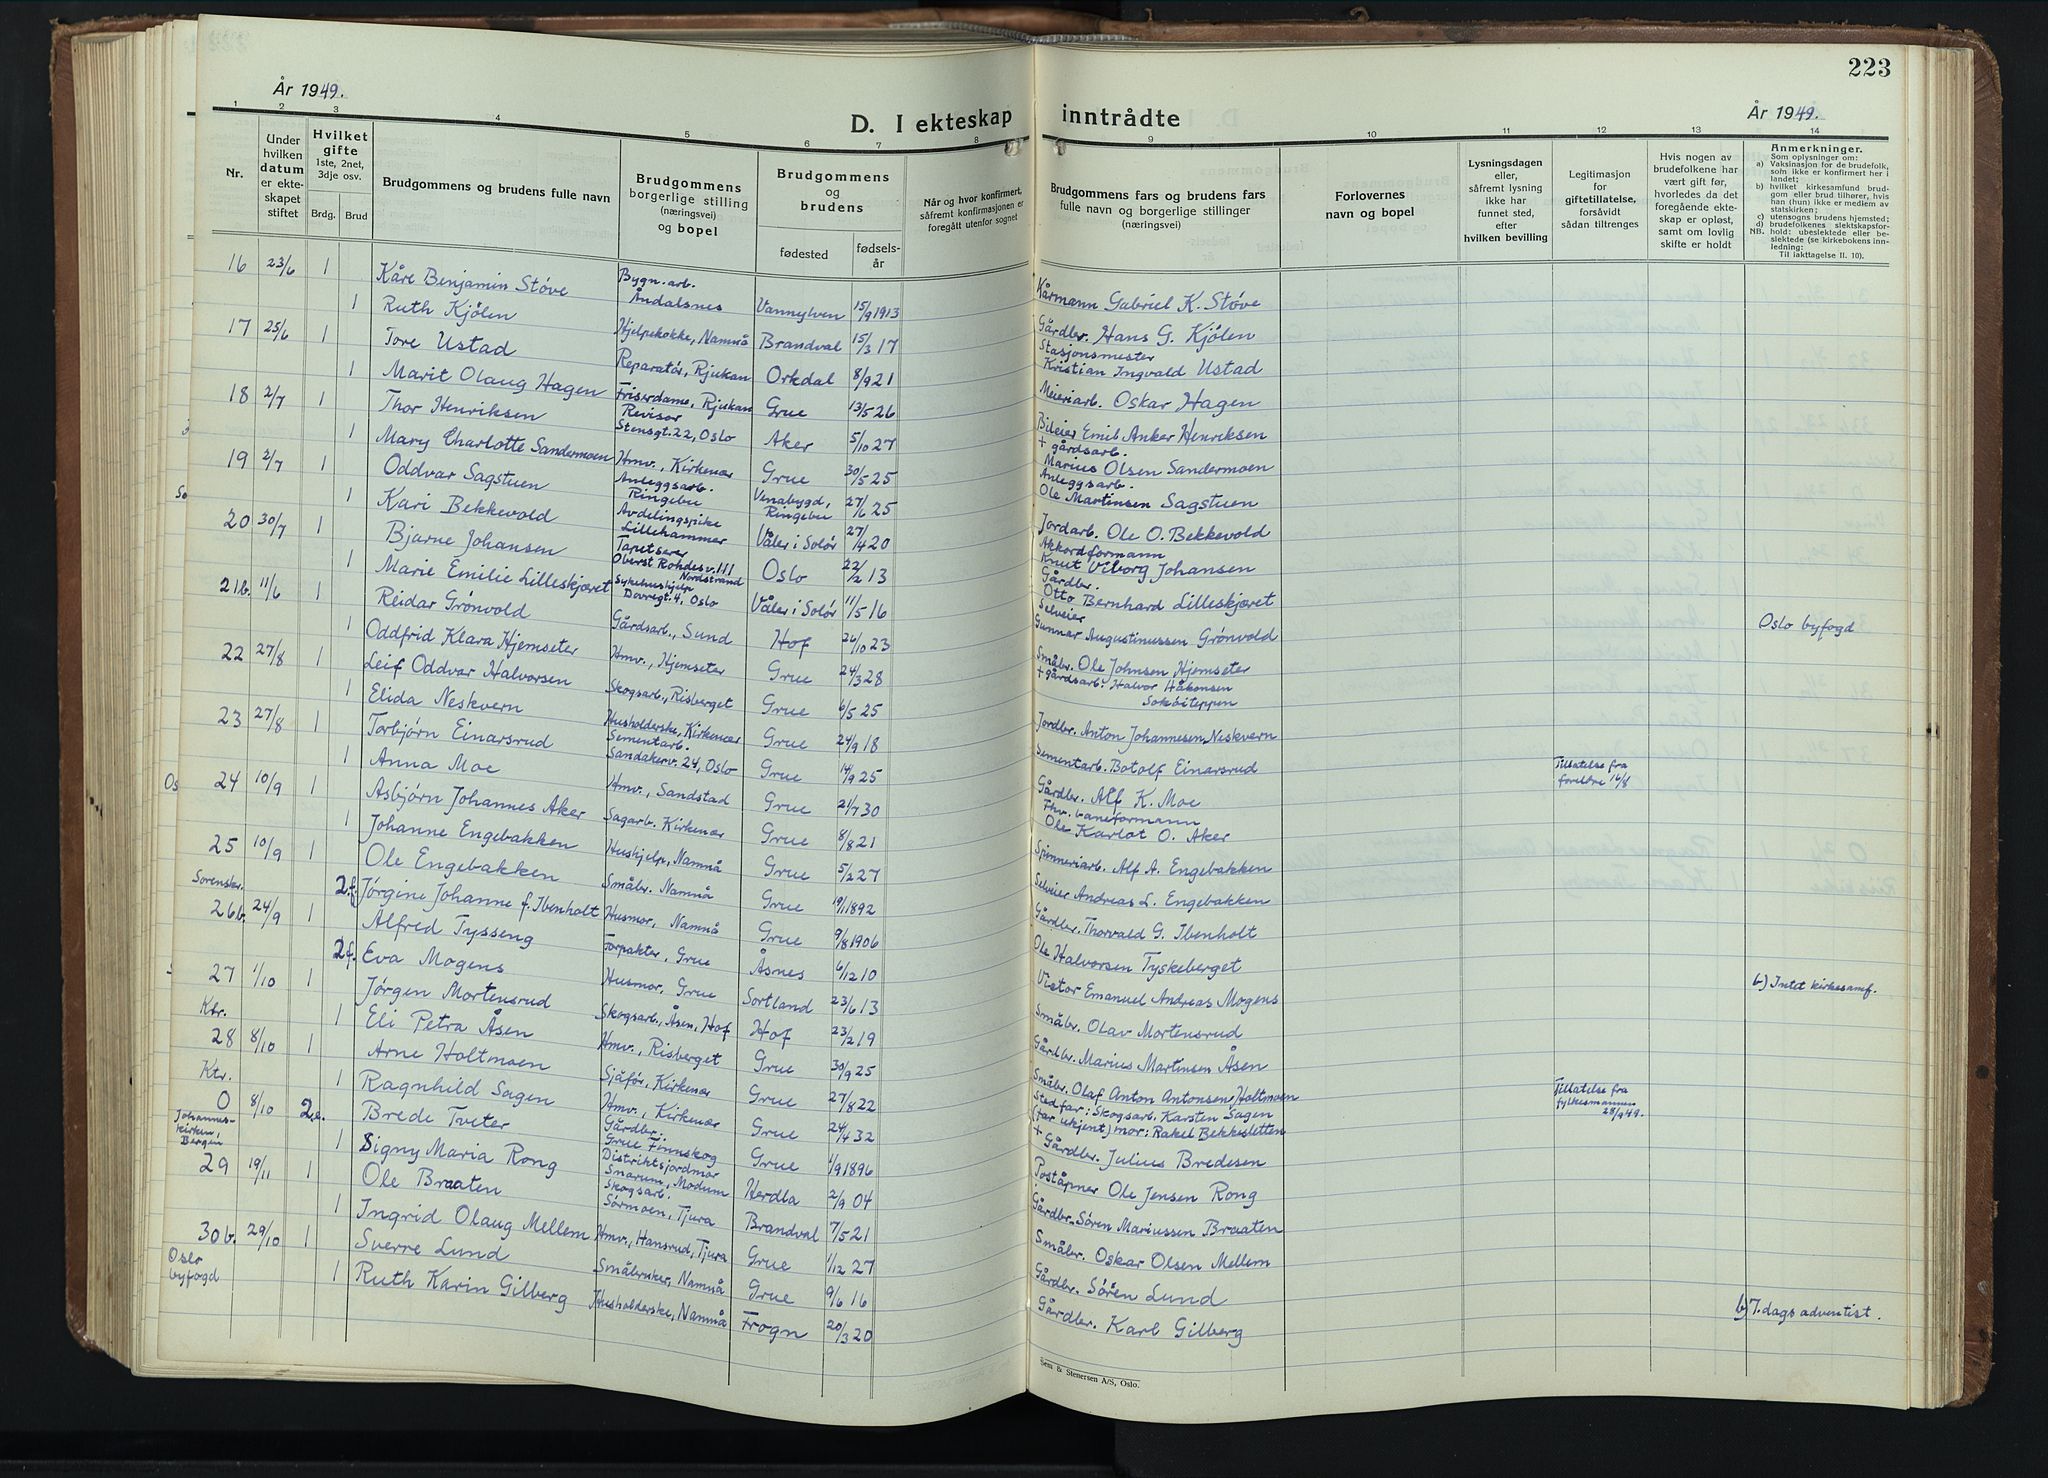 223
År 1949.
År 1949.
D. I ekteskap inntrådte
1 2 3 4 5 6 7 8 9 10 11 12 13 14
Nr.
Under hvilken datum er ekteskapet stiftet
Hvilket gifte 1ste, 2net, 3dje osv.
Brdg. Brud
Brudgommens og brudens fulle navn
Brudgommens borgerlige stilling (næringsvei) og bopel
Brudgommens og brudens
fødested fødselsår
Når og hvor konfirmert, såfremt konfirmasjonen er foregått utenfor sognet
Brudgommens fars og brudens fars fulle navn og borgerlige stillinger (næringsvei)
Forlovernes navn og bopel
Lysningsdagen eller, såfremt lysning ikke har funnet sted, efter hvilken bevilling
Legitimasjon for giftetillatelse, forsåvidt sådan tiltrenges
Hvis nogen av brudefolkene har vært gift før, hvorledes da det foregående ekteskap er opløst, samt om lovlig skifte er holdt
Anmerkninger.
Som oplysninger om:
a) Vaksinasjon for de brudefolk, som ikke er konfirmert her i landet;
b) hvilket kirkesamfund brudgom eller brud tilhører, hvis han (hun) ikke er medlem av statskirken;
c) utensogns brudens hjemsted;
d) brudefolkenes slektskapsforhold: ubeslektede eller beslektede (se kirkebokens innledning:
NB. Til iakttagelse II. 10).
16 23/6 1 Kåre Benjamin Støve Bygn.arb. Åndalsnes Vannylven 15/9 1913 Kårmann Gabriel K. Støve
1 Ruth Kjølen Hjelpekokke, Namnå Brandval 15/3 17 Gårdbr. Hans G. Kjølen
17 25/6 1 Tore Ustad Reparatør, Rjukan Orkdal 8/9 21 Stasjonsmester Kristian Ingvald Ustad
1 Marit Olaug Hagen Friserdame, Rjukan Grue 13/5 26 Meieriarb. Oskar Hagen
18 2/7 1 Thor Henriksen Revisor Stensgt. 22, Oslo Aker 5/10 27 Bileier Emil Anker Henriksen
1 Mary Charlotte Sandermoen Hmv., Kirkenær Grue 30/5 25 + gårdsarb. Marius Olsen Sandermoen
19 2/7 1 Oddvar Sagstuen Anleggsarb. Ringebu Venabygd, Ringebu 27/6 25 Anleggsarb. Ole Martinsen Sagstuen
1 Kari Bekkevold Avdelingspike Lillehammer Våler i Solør 27/4 20 Jordarb. Ole O. Bekkevold
20 30/7 1 Bjarne Johansen Tapetserer Oberst Rohdes v. 111 Nordstrand Oslo 22/2 13 Akkordformann Knut Viborg Johansen
1 Marie Emilie Lilleskjæret Sykehushjelp Dovregt. 4, Oslo Våler i Solør 11/5 16 Gårdbr. Otto Bernhard Lilleskjæret
21b. 11/6 1 Reidar Grønvold Gårdsarb., Sund Hof 26/10 23 Selveier Gunnar Augustinussen Grønvold Oslo byfogd
1 Oddfrid Klara Hjemseter Hmv., Hjemseter Grue 24/3 28 Småbr. Ole Johnsen Hjemseter
22 27/8 1 Leif Oddvar Halvorsen Skogsarb., Risberget Grue 6/5 25 + gårdsarb. Halvor Håkonsen
1 Elida Neskvern Husholderske, Kirkenær Grue 24/9 18 Jordbr. Anton Johannesen Neskvern
23 27/8 1 Torbjørn Einarsrud Sementarb. Sandakerv. 24, Oslo Grue 14/9 25 Sementarb. Botolf Einarsrud
1 Anna Moe Hmv., Sandstad Grue 21/7 30 Gårdbr. Alf K. Moe Tillatelse fra foreldre 16/8
24 10/9 1 Asbjørn Johannes Aker Sagarb. Kirkenær Grue 8/8 21 Fhv. baneformann Ole Karlot O. Aker
1 Johanne Engebakken Hushjelp, Namnå Grue 5/2 27 Spinneriarb. Alf A. Engebakken
25 10/9 1 Ole Engebakken Småbr. Namnå Grue 19/1 1892 Selveier Andreas L. Engebakken
Sorenskr. 2.f. Jørgine Johanne f. Ibenholt Husmor, Namnå Grue 9/8 1906 Gårdbr. Thorvald G. Ibenholt
26b. 24/9 1 Alfred Tysseng Forpakter, Grue Åsnes 6/12 10 Ole Halvorsen Tyskeberget
2f. Eva Mogens Husmor, Grue Sortland 23/6 13 Victor Emanuel Andreas Mogens b) Intet kirkesamf.
27 1/10 1 Jørgen Mortensrud Skogsarb., Åsen, Hof Hof 23/2 19 Småbr. Olav Mortensrud
Ktr. 1 Eli Petra Åsen Hmv., Risberget Grue 30/9 25 Gårdbr. Marius Martinsen Åsen
28 8/10 1 Arne Holtmoen Sjåfør, Kirkenær Grue 27/8 22 Småbr. Olaf Anton Antonsen Holtmoen
Ktr. 1 Ragnhild Sagen Hmv., Kirkenær Grue 24/4 32 Stedfar: Skogsarb. Karsten Sagen (far ukjent) mor: Rakel Bekkesletten Tillatelse fra fylkesmannen 28/9 49.
0 8/10 2.e. Brede Tveter Gårdbr. Grue Finnskog Grue 1/9 1896 + Gårdbr. Julius Bredesen
Johanneskirken, Bergen 1 Signy Maria Rong Distriktsjordmor Snarum, Modum Herdla 2/9 04 Poståpner Ole Jensen Rong
29 19/11 1 Ole Braaten Skogsarb. Sørmoen, Tjura Brandval 7/5 21 Gårdbr. Søren Mariussen Braaten
1 Ingrid Olaug Mellem Hmv., Hansrud, Tjura Grue 1/12 27 Småbr. Oskar Olsen Mellem
30b. 29/10 1 Sverre Lund Småbruker, Namnå Grue 9/6 16 Gårdbr. Søren Lund
Oslo byfogd 1 Ruth Karin Gilberg Husholderske, Namnå Frogn 20/3 20 Gårdbr. Karl Gilberg b) 7. dags adventist.
Sem & Stenersen A/S, Oslo.